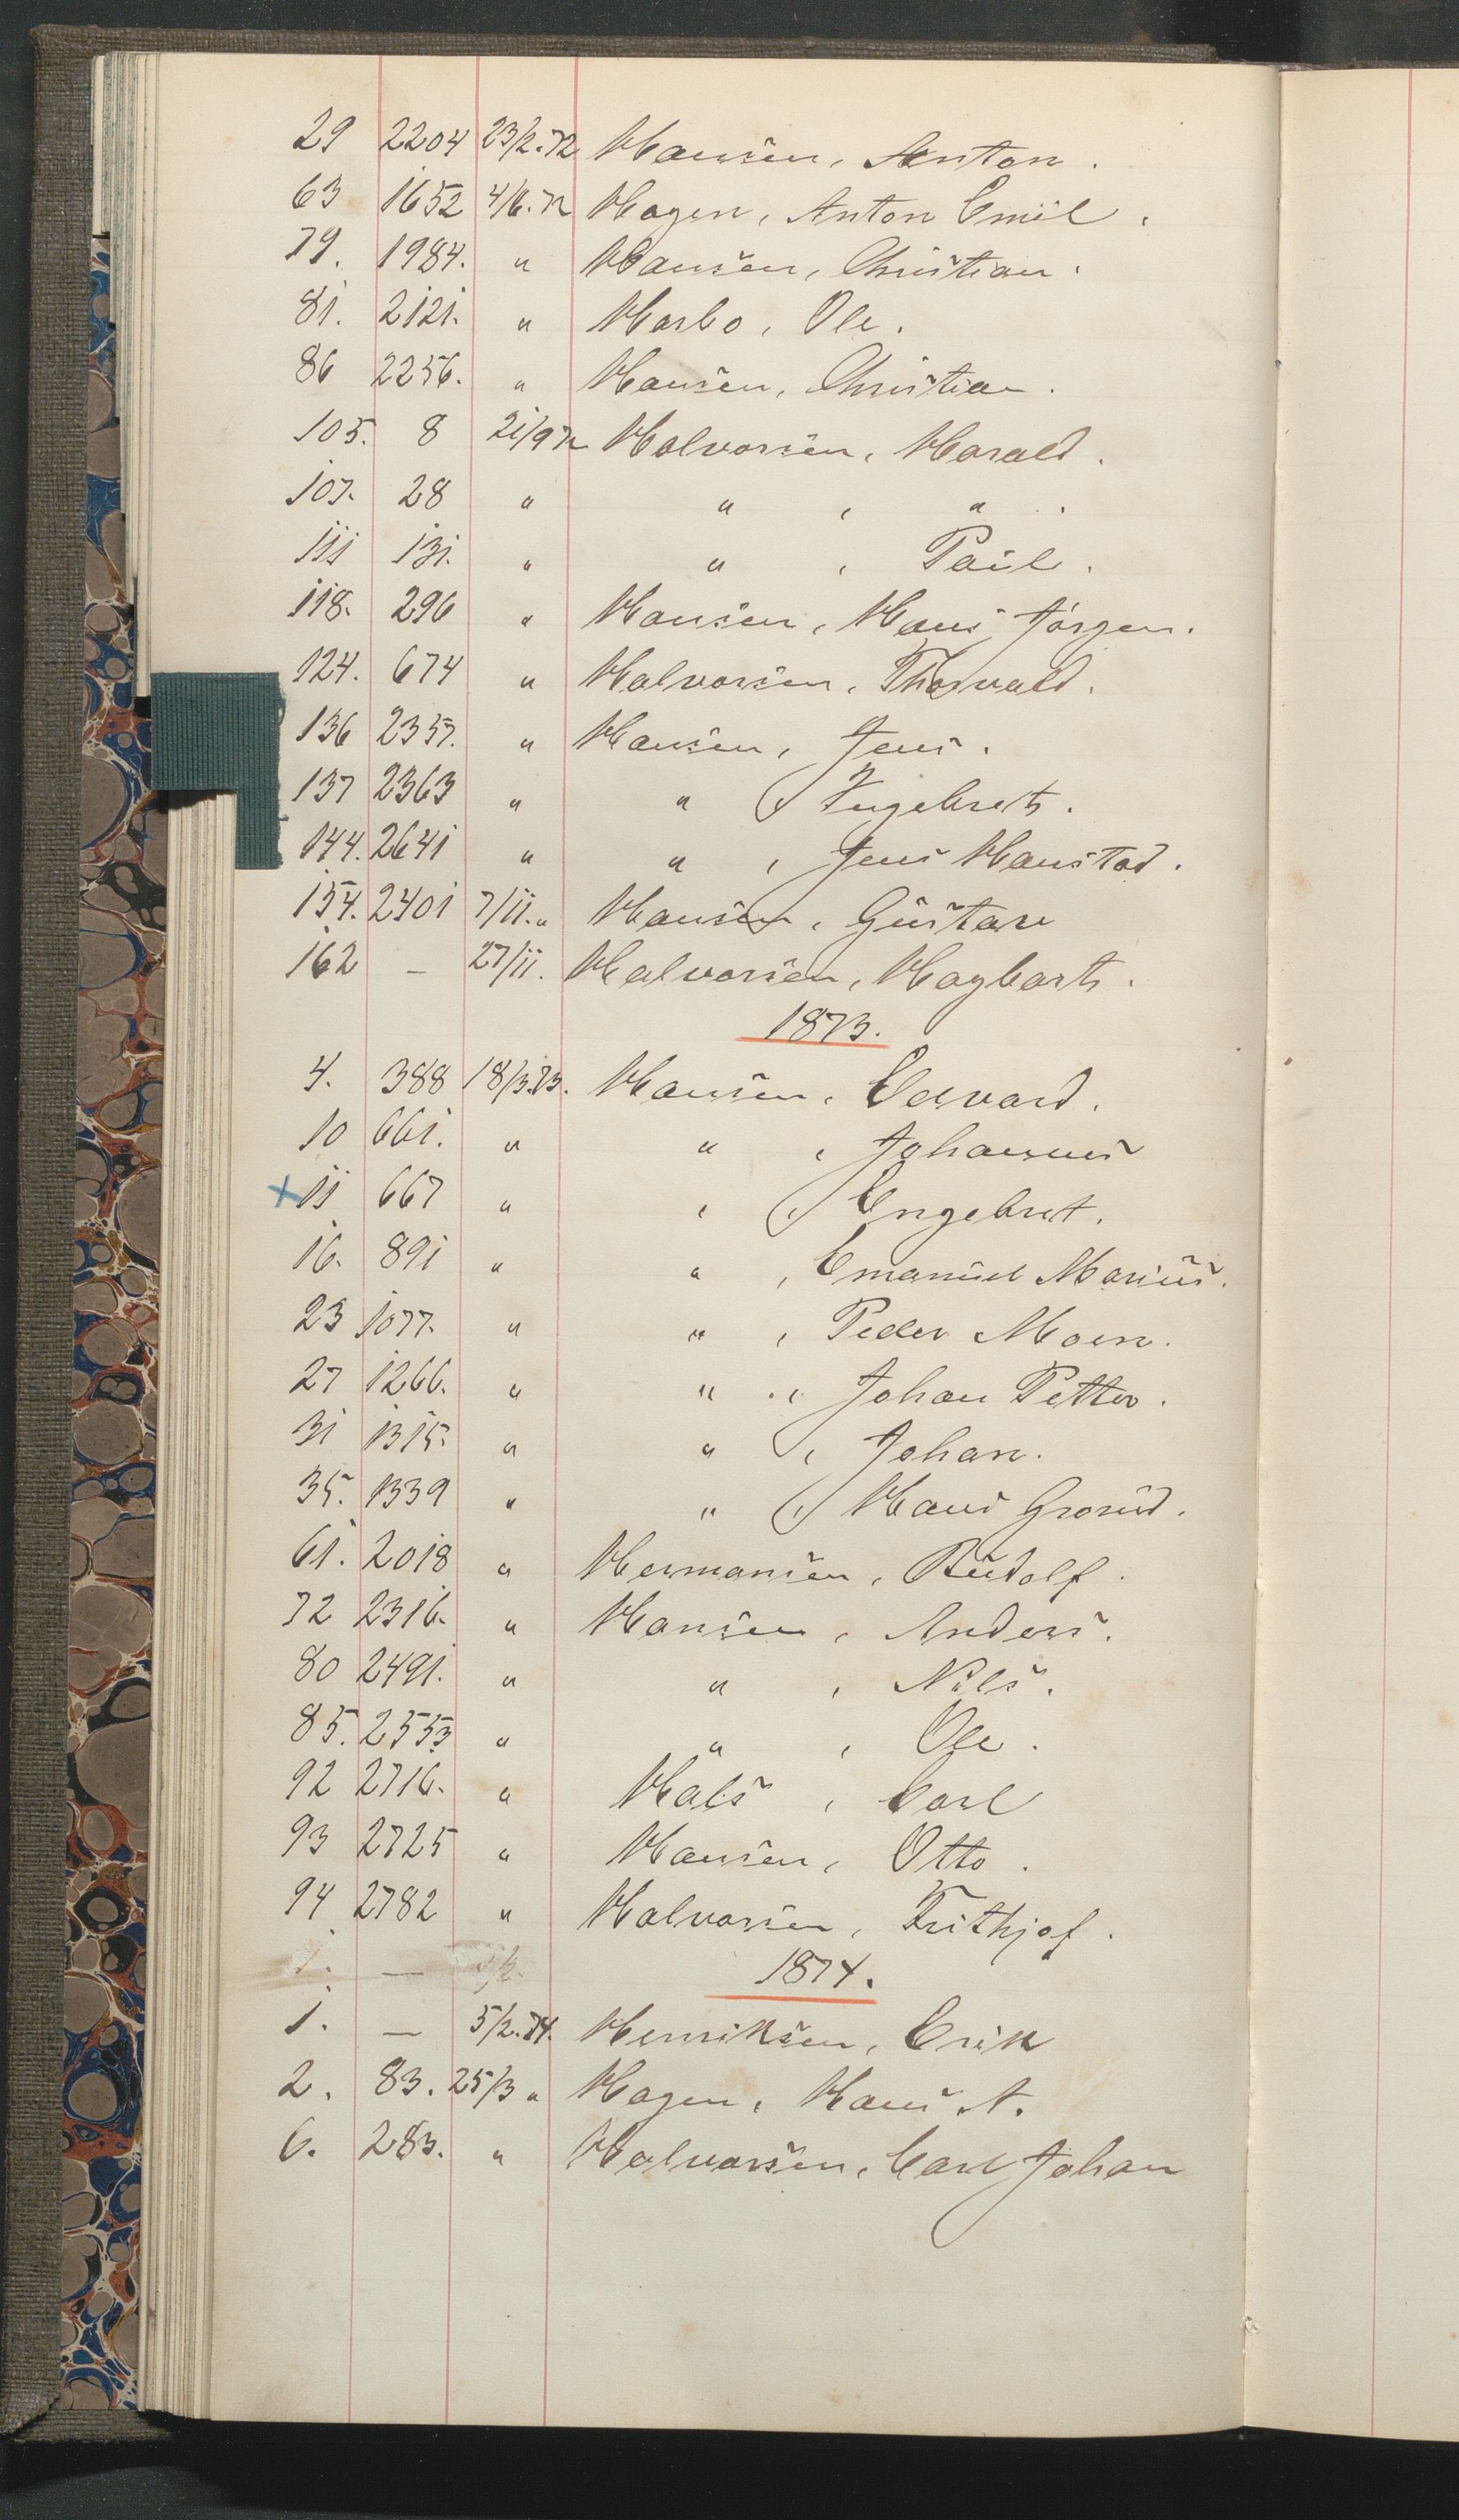 29 2204 23/2.72 Hansen, Anton.
63 1652 4/6.72 Hagen, Anton Emil.
79. 1984. " Hansen, Christian.
81. 2121. " Harbo, Ole.
86 2256. " Hansen, Christian.
105. 8 21/9 72 Halvorsen, Harald.
107. 28 " " , " .
111 131. " " , Paul.
118. 296 " Hansen, Hans Jörgen.
124. 674 " Halvorsen, Thorvald.
136 2357. " Hansen, Jens.
137 2363 " " , Ingebret.
144. 2641 " " , Jens Hanstad.
154. 2401 7/11. " Hansen, Gustave
162 — 27/11. Halvorsen, Hagbart.
1873.
4. 388 18/3.73. Hansen, Edvard.
10 661. " " , Johannes
x 11 667 " " , Engebret.
16. 891 " " , Emanuel Marius.
23 1077. " " , Peder Moen.
27 1266. " " , Johan Petter.
31 1315. " " , Johan.
35. 1339 " " , Hans Grorud.
61. 2018 " Hermansen, Rudolf.
72 2316. " Hansen, Anders.
80 2491. " " , Nils.
85. 2553 " " , Ole.
92 2716. " Hals, Carl
93 2725 " Hansen, Otto.
94 2782 " Halvorsen, Frithjof.
1. — 1874.
1. — 5/2.74. Henriksen, Erik
2. 83. 25/3 " Hagen, Hans A.
6. 283. " Halvorsen, Carl Johan